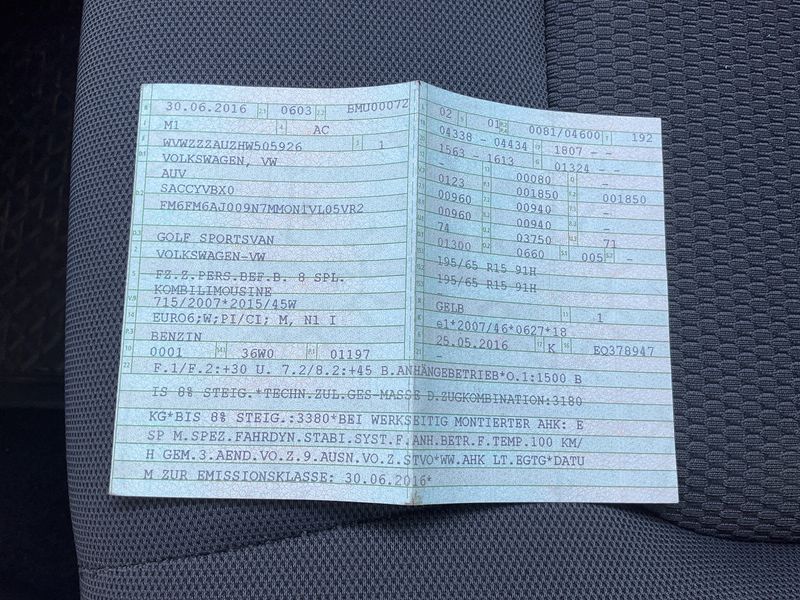 30.06.2016 0603 BMU00072
M1 AC
WVWZZZAUZHW505926 1
VOLKSWAGEN, VW
AUV
SACCYVBX0
FM6FM6AJ009N7MMON1VL05VR2
GOLF SPORTSVAN
VOLKSWAGEN-VW
FZ.Z.PERS.BEF.B. 8 SPL.
KOMBILIMOUSINE
715/2007*2015/45W
EURO6;W;PI/CI; M, N1 I
BENZIN
0001 36W0 01197
02 01 0081/04600 192
04338 - 04434 1807 - -
1563 - 1613 01324 - -
- 00080 -
0123 001850 001850
00960 00940 -
00960 00940 -
74 03750 71
01300 0660 005 -
195/65 R15 91H
195/65 R15 91H
-
GELB 1
e1*2007/46*0627*18
25.05.2016 K EQ378947
-
F.1/F.2:+30 U. 7.2/8.2:+45 B.ANHÄNGEBETRIEB*O.1:1500 B
IS 8% STEIG.*TECHN.ZUL.GES-MASSE D.ZUGKOMBINATION:3180
KG*BIS 8% STEIG.:3380*BEI WERKSEITIG MONTIERTER AHK: E
SP M.SPEZ.FAHRDYN.STABI.SYST.F.ANH.BETR.F.TEMP.100 KM/
H GEM.3.AEND.VO.Z.9.AUSN.VO.Z.STVO*WW.AHK LT.EGTG*DATU
M ZUR EMISSIONSKLASSE: 30.06.2016*